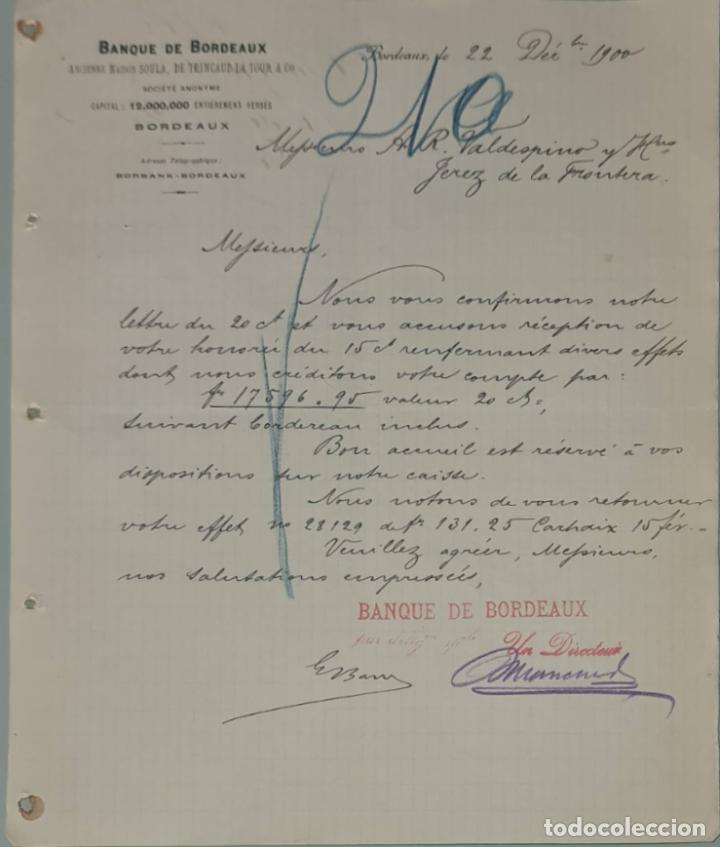 BANQUE DE BORDEAUX
ANCIENNE MAISON SOULA, DE TRINCAUD-LA TOUR & Co
SOCIÉTÉ ANONYME
CAPITAL : 12,000,000 ENTIÈREMENT VERSÉS
BORDEAUX
Adresse Télégraphique :
BORBANK-BORDEAUX
Bordeaux, le 22 Déc bre 1900
Messieurs A. R. Valdespino y Hno
Jerez de la Frontera.
Messieurs,
Nous vous confirmons notre
lettre du 20 ct et vous accusons réception de
votre honorée du 15 ct renfermant divers effets
dont nous créditons votre compte par :
fr 17596.95 valeur 20 ct,
suivant bordereau inclus.
Bon accueil est réservé à vos
dispositions sur notre caisse.
Nous notons de vous retourner
votre effet no 28129 de fr 131.25 Carhaix 15 fév.
Veuillez agréer, Messieurs,
nos salutations empressées,
BANQUE DE BORDEAUX
Un Directeur
todocoleccion.net